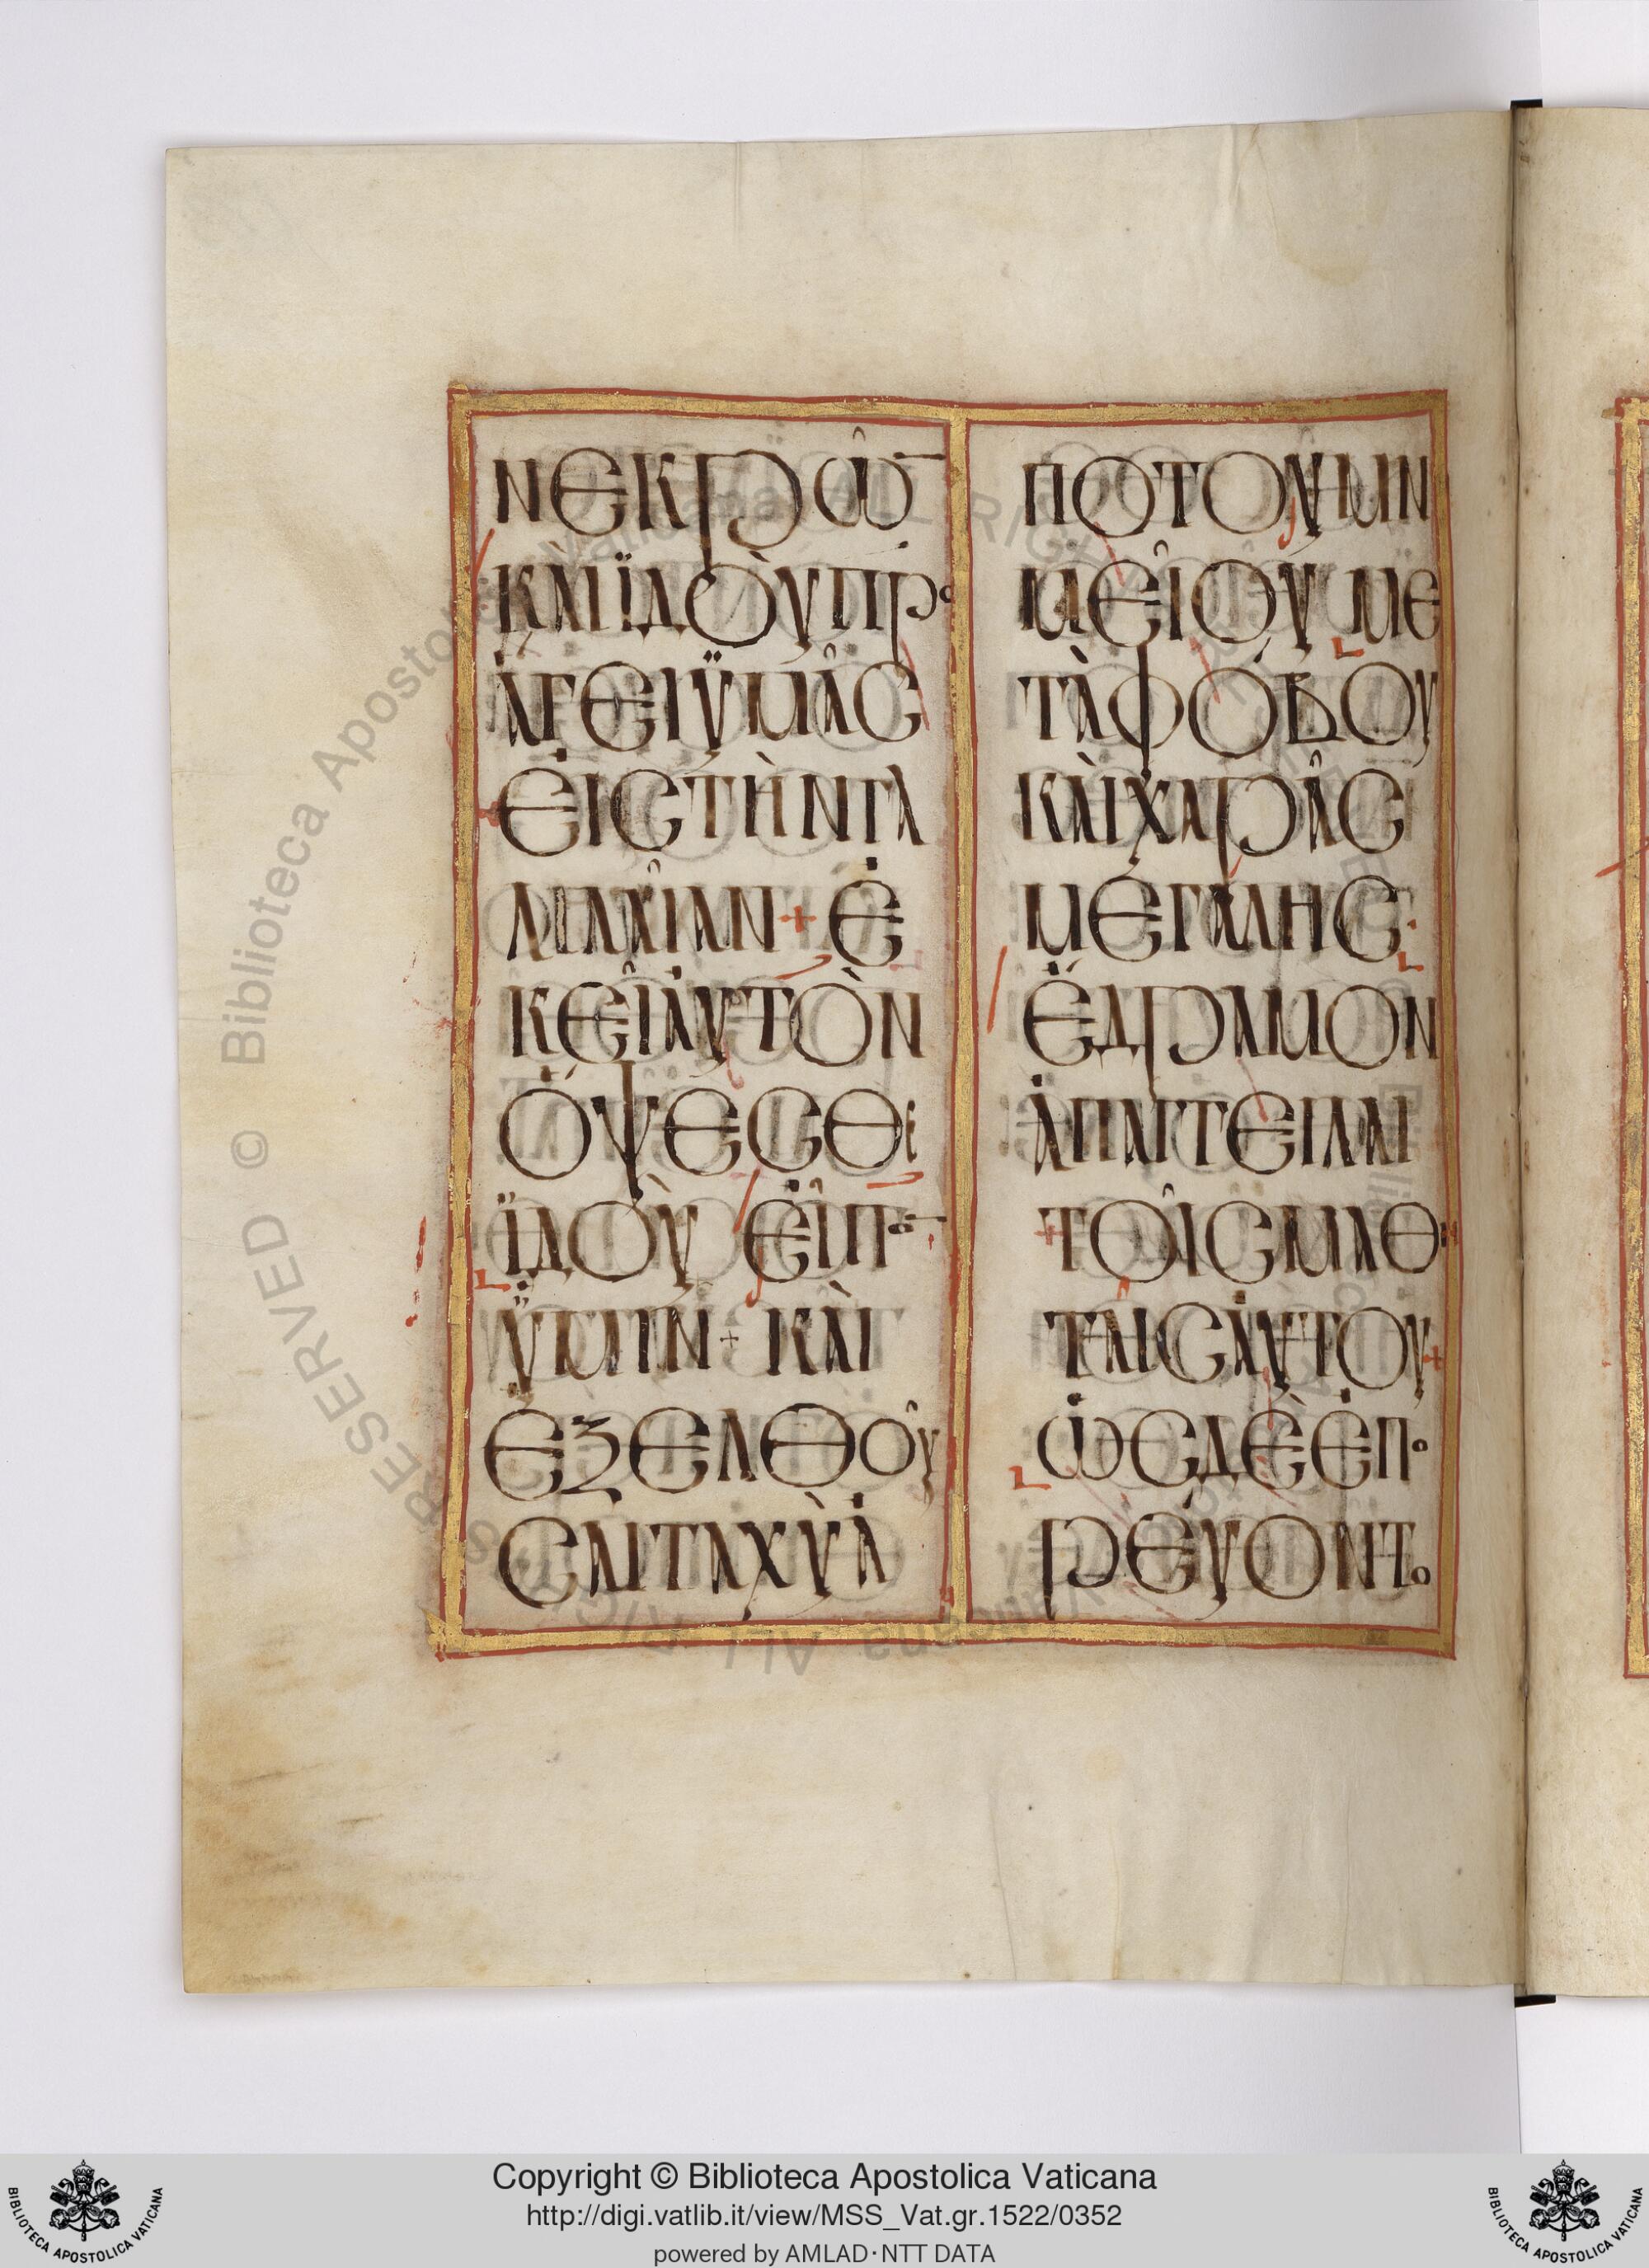 ΝΕΚΡΩ̅
ΚΑΙ ΪΔΟῪ ΠΡΟ
ΑΓΕΙ ΫΜΑ͂Σ
ΕΙΣ ΤῊΝ ΓΑ
ΛΙΛΑΙΑΝ + Ε
ΚΕΙ͂ ΑΥΤῸΝ
ὌΨΕΣΘΕ
ΪΔΟῪ ΕΙ͂ΠΟ̅
ΫΜΙΝ + ΚΑῚ
ΕΞΕΛΘΟΥ͂
ΣΑΙ ΤΑΧῪ Ἀ
ΠΟ ΤΟΥ ΜΝ
ΜΕΙΟΥ ΜΕ
ΤᾺ ΦΟΒΟΥ
ΚΑῚ ΧΑΡΑ͂Σ
ΜΕΓΑΛΗΣ·
ἜΔΡΑΜΟΝ
ἈΠΑΓΓΕΙΛΑΙ
ΤΟΙ͂Σ ΜΑΘΗ
ΤΑΙΣ ΑΥΤΟΥ +
ὩΣ ΔῈ ἘΠΟ
ΡΕΥΟΝΤΟ
© Biblioteca Apostolica Vaticana ALL RIGHTS RESERVED
Copyright © Biblioteca Apostolica Vaticana
http://digi.vatlib.it/view/MSS_Vat.gr.1522/0352
powered by AMLAD·NTT DATA
BIBLIOTECA APOSTOLICA VATICANA
BIBLIOTECA APOSTOLICA VATICANA